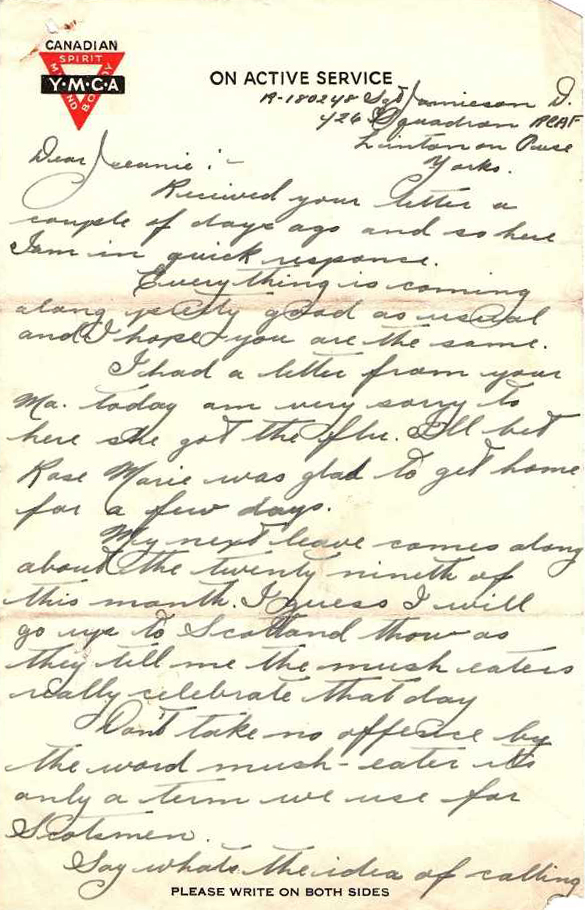 CANADIAN
SPIRIT
Y·M·C·A
MIND BODY
ON ACTIVE SERVICE
R-180248 Sgt Jamieson D.
426 Squadron RCAF
Linton on Ouse
Yorks.
Dear Jeanie :-
Recieved your letter a
couple of days ago and so here
I am in quick response.
Everything is coming
along pretty good as usual
and I hope you are the same.
I had a letter from your
Ma. today am very sorry to
here she got the flu. I'll bet
Rose Marie was glad to get home
for a few days.
My next leave comes along
about the twenty nineth of
this month. I guess I will
go up to Scotland thow as
they tell me the mush eaters
really celebrate that day
Don't take no offence by
the word mush-eater its
only a term we use for
Scotsmen.
Say whats the idea of calling
PLEASE WRITE ON BOTH SIDES